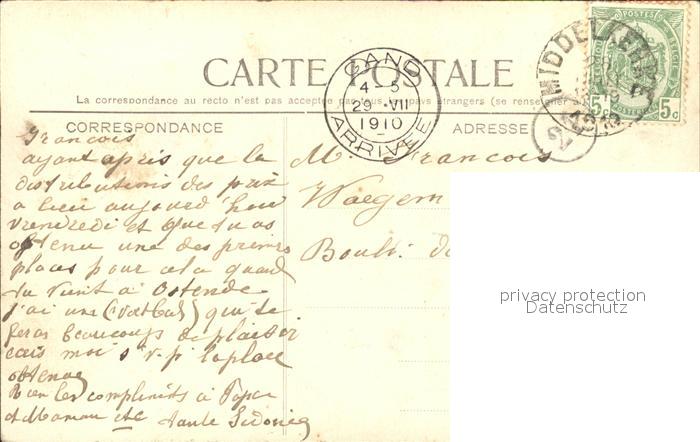 CARTE POSTALE
La correspondance au recto n'est pas acceptée pas tous pays étrangers (se renseigner
GAND
4-5
29 VII
1910
ARRIVÉE
MIDDELKERKE
POSTES
5c 5c
CORRESPONDANCE
ADRESSE
François
ayant apris que la
distributions des prix
a lieu aujourd'hui
vrendredi et que tu as
obtenu une des premiers
places pour cela quand
tu vient à Ostende
j'ai une (football) qui te
feras beaucoups de plaisir
s.v.p. la place
obtenue
Bien les compliments à Papa
et Maman etc tante Sidonie
M. Francois
Waegem
Boul.
privacy protection
Datenschutz